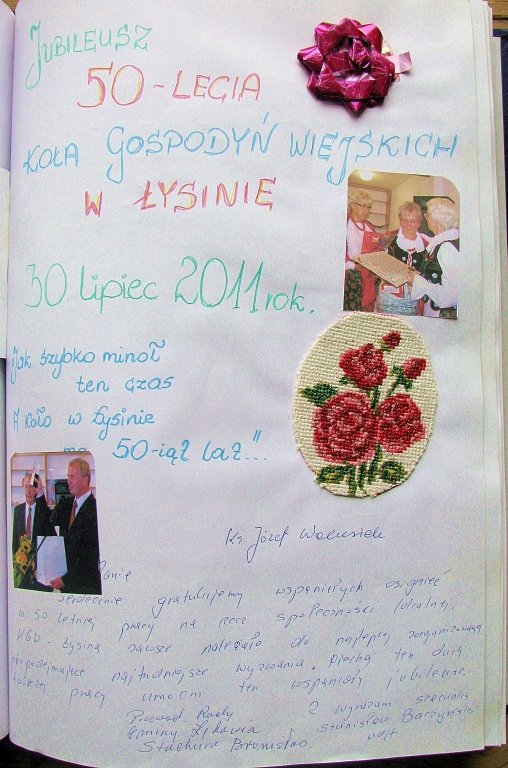 JUBILEUSZ
50-LECIA
KOŁA GOSPODYŃ WIEJSKICH
W ŁYSINIE
30. lipiec 2011 rok.
Jak szybko minoł
ten czas
A Koło w Łysinie
ma 50-iąt laż"...
Ks. Józef
Panie
Serdecznie gratulujemy wspaniałych osignieć
w 50 letniej pracy na rzecz społeczności lokalnej.
KGW - Łysina zawsze należało do najlepiej zorganizowanych
podejmujące najtrudniejsze wyzwania. Niechaj ten duch
twórczej pracy umocni ten wspaniały jubileusz
Z wyrazem szacunku
Przewod. Rady
Gminy Łękawica
Stachura Bronisław
Stanisław Baczyński
wójt